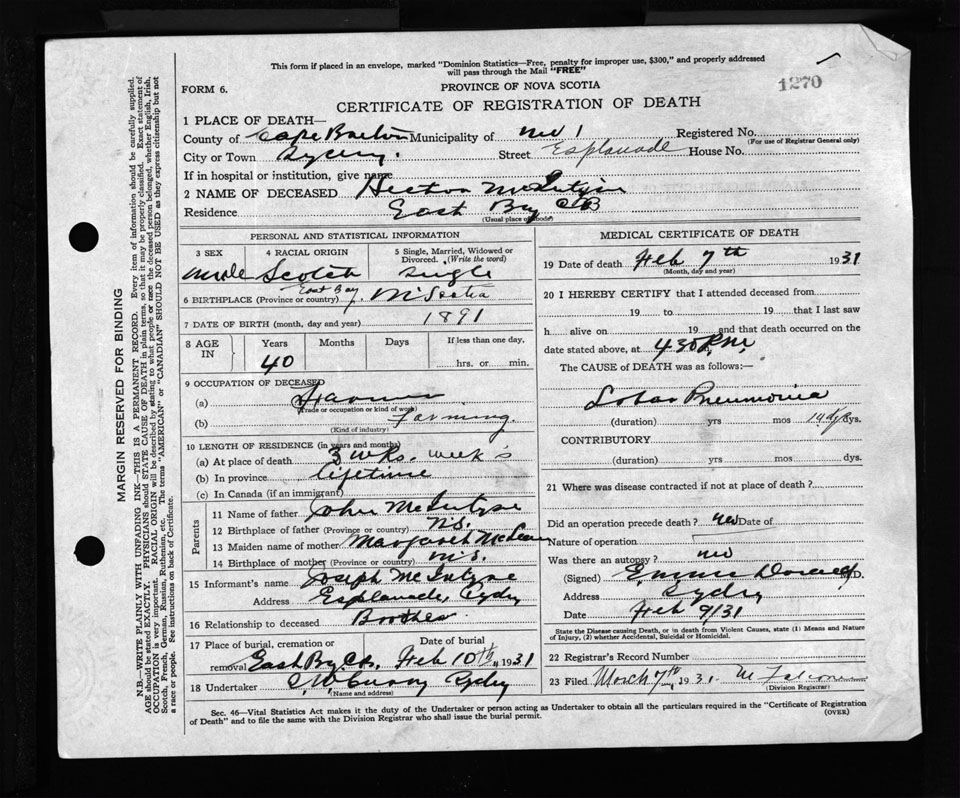 This form if placed in an envelope, marked "Dominion Statistics—Free, penalty for improper use, $300," and properly addressed
will pass through the Mail "FREE"
1270
FORM 6.
PROVINCE OF NOVA SCOTIA
CERTIFICATE OF REGISTRATION OF DEATH
1 PLACE OF DEATH—
County of Cape Breton Municipality of No 1 Registered No.
(For use of Registrar General only)
City or Town Sydney. Street Esplanade House No.
If in hospital or institution, give name
2 NAME OF DECEASED Hector McIntyre
Residence East Bay CB
(Usual place of abode)
PERSONAL AND STATISTICAL INFORMATION
3 SEX 4 RACIAL ORIGIN 5 Single, Married, Widowed or Divorced. (Write the word)
Male Scotch Single
East Bay
6 BIRTHPLACE (Province or country) N Scotia
7 DATE OF BIRTH (month, day and year) 1891
8 AGE IN Years Months Days If less than one day,
40 hrs. or min.
9 OCCUPATION OF DECEASED
(a) Farmer
(Trade or occupation or kind of work)
(b) Farming.
(Kind of industry)
10 LENGTH OF RESIDENCE (in years and months)
(a) At place of death 3 wks. week's
(b) In province lifetime
(c) In Canada (if an immigrant)
Parents
11 Name of father John McIntyre
12 Birthplace of father (Province or country) N.S.
13 Maiden name of mother Margaret McLean
14 Birthplace of mother (Province or country) N.S.
15 Informant's name Joseph McIntyre
Address Esplanade, Sydney
16 Relationship to deceased Brother
17 Place of burial, cremation or removal Date of burial
East Bay CB. Feb 10th, 1931
18 Undertaker Curry Sydney
(Name and address)
MEDICAL CERTIFICATE OF DEATH
19 Date of death Feb 7th 1931
(Month, day and year)
20 I HEREBY CERTIFY that I attended deceased from
19 to 19 that I last saw
h alive on 19 and that death occurred on the
date stated above, at 4 30 P.M.
The CAUSE of DEATH was as follows:—
Lobar Pneumonia
(duration) yrs mos 14 dys dys.
CONTRIBUTORY
(duration) yrs mos. dys.
21 Where was disease contracted if not at place of death?
Did an operation precede death? no Date of
Nature of operation
Was there an autopsy? no
(Signed) M.D.
Address Sydney
Date Feb 9/31
State the Disease causing Death, or in death from Violent Causes, state (1) Means and Nature
of Injury, (2) whether Accidental, Suicidal or Homicidal.
22 Registrar's Record Number
23 Filed March 7th, 1931.
(Division Registrar)
Sec. 46—Vital Statistics Act makes it the duty of the Undertaker or person acting as Undertaker to obtain all the particulars required in the "Certificate of Registration
of Death" and to file the same with the Division Registrar who shall issue the burial permit. (OVER)
MARGIN RESERVED FOR BINDING
N.B.—WRITE PLAINLY WITH UNFADING INK—THIS IS A PERMANENT RECORD. Every item of information should be carefully supplied.
AGE should be stated EXACTLY. PHYSICIANS should STATE CAUSE OF DEATH in plain terms, so that it may be properly classified. Exact statement of
OCCUPATION is very important. RACIAL ORIGIN will be described by stating to what people or race the deceased person belonged, whether English, Irish,
Scotch, French, German, Russian, Ruthenian, etc. The terms "AMERICAN" or "CANADIAN" SHOULD NOT BE USED as they express citizenship but not
a race or people. See instructions on back of Certificate.